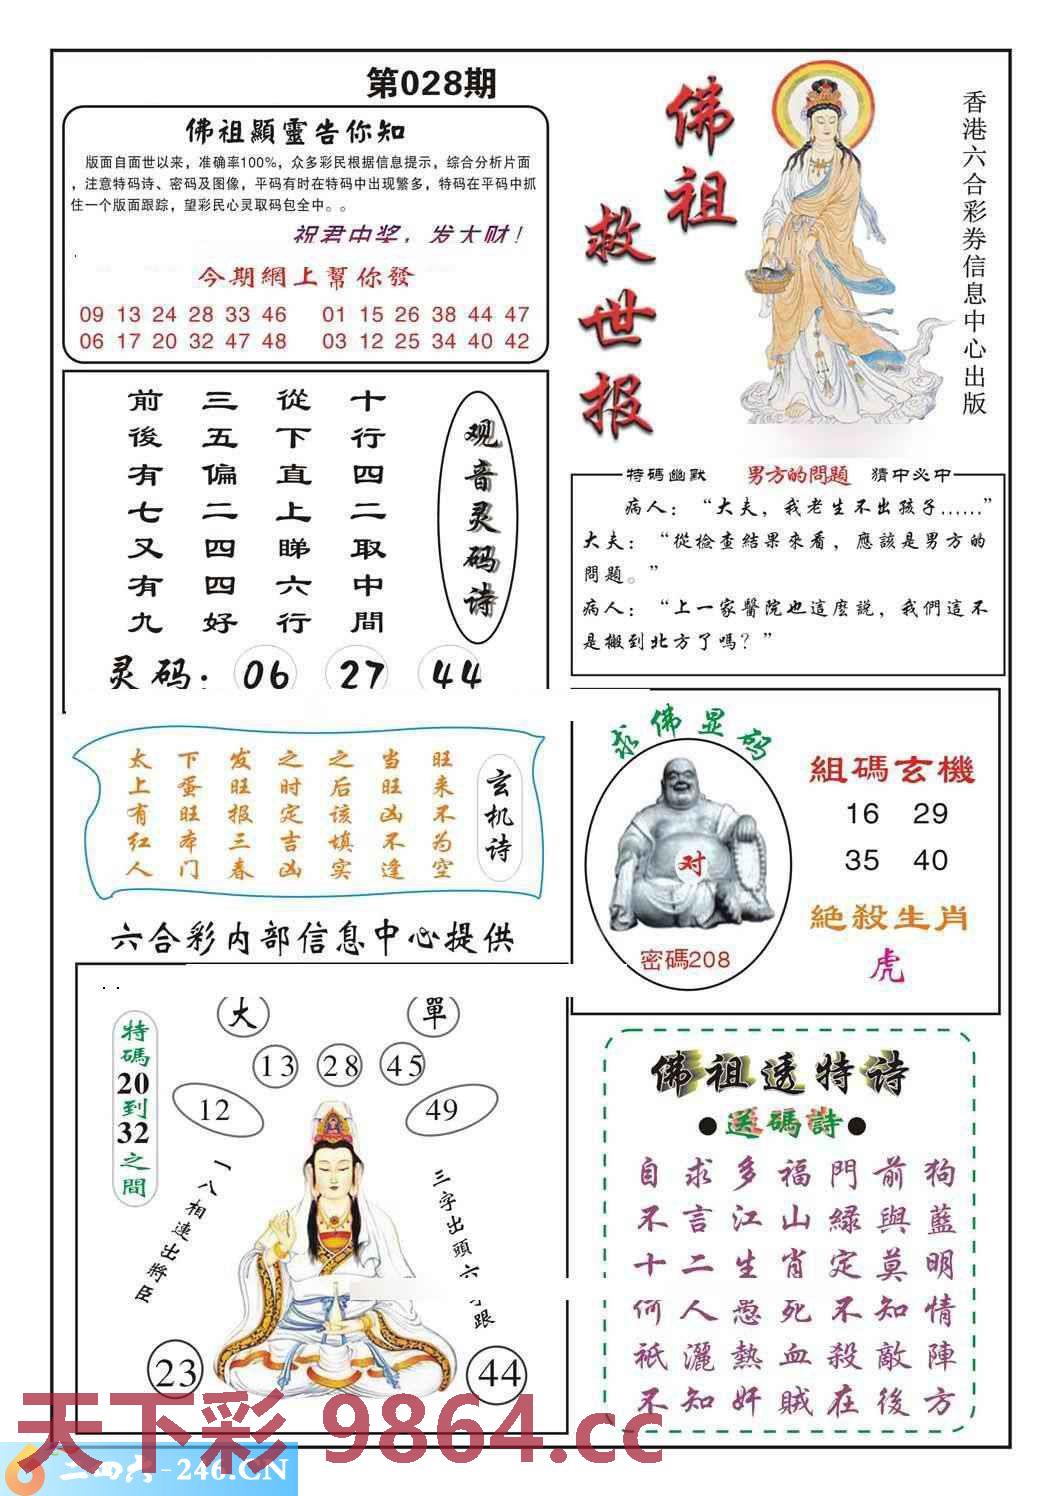 第028期
佛祖顯靈告你知
版面自面世以来，准确率100%，众多彩民根据信息提示，综合分析片面
，注意特码诗、密码及图像，平码有时在特码中出现繁多，特码在平码中抓
住一个版面跟踪，望彩民心灵取码包全中。。
祝君中奖，发大财！
今期網上幫你發
09 13 24 28 33 46 01 15 26 38 44 47
06 17 20 32 47 48 03 12 25 34 40 42
佛祖
救世报
香港六合彩券信息中心出版
观音灵码诗
十行四二取中間
從下直上睇六行
三五偏二四四好
前後有七又有九
灵码：06 27 44
特碼幽默 男方的問題 猜中必中
病人：“大夫，我老生不出孩子……”
大夫：“從檢查結果來看，應該是男方的
問題。”
病人：“上一家醫院也這麼説，我們這不
是搬到北方了嗎？”
玄机诗
旺来不为空
当旺凶不逢
之后该填实
之时定吉凶
发旺报三春
下蛋旺本门
太上有红人
六合彩内部信息中心提供
求佛显码
对
密碼208
組碼玄機
16 29
35 40
絶殺生肖
虎
特碼20到32之間
大 單
13 28 45
12 49
一八相連出將臣
三字出頭六
跟
23 44
佛祖透特诗
●送碼詩●
自求多福門前狗
不言江山綠與藍
十二生肖定莫明
何人愚死不知情
祇灑熱血殺敵陣
不知奸賊在後方
天下彩 9864.cc
二四六-246.CN